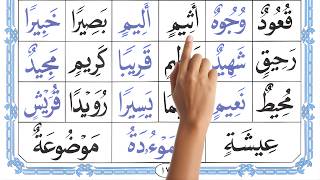 قُعُودٌ وُجُوهٌ أَثِيمٍ أَلِيمٍ بَصِيرًا خَبِيرًا
رَحِيقٍ شَهِيدٌ قَرِيبًا كَرِيمٍ مَجِيدٌ
مُحِيطٌ نَعِيمٍ يَسِيرًا رُوَيْدًا قُرَيْشٍ
عِيشَةٍ مَوْءُدَةُ مَوْضُوعَةٌ